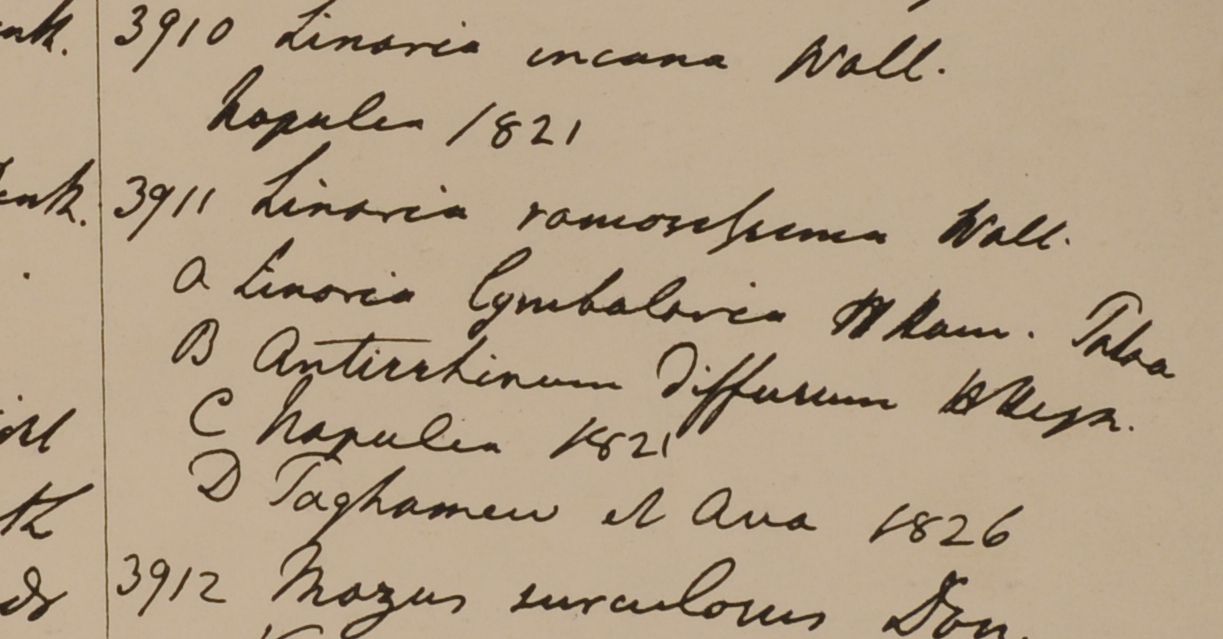 3910 Linaria incana Wall.
Napulia 1821
3911 Linaria ramosissima Wall.
A Linaria Cymbalaria H Ham.
B Antirrhinum diffusum HHeyn.
C Napulia 1821
D Taghamew et Ava 1826
3912 Mazus surculosus Don.